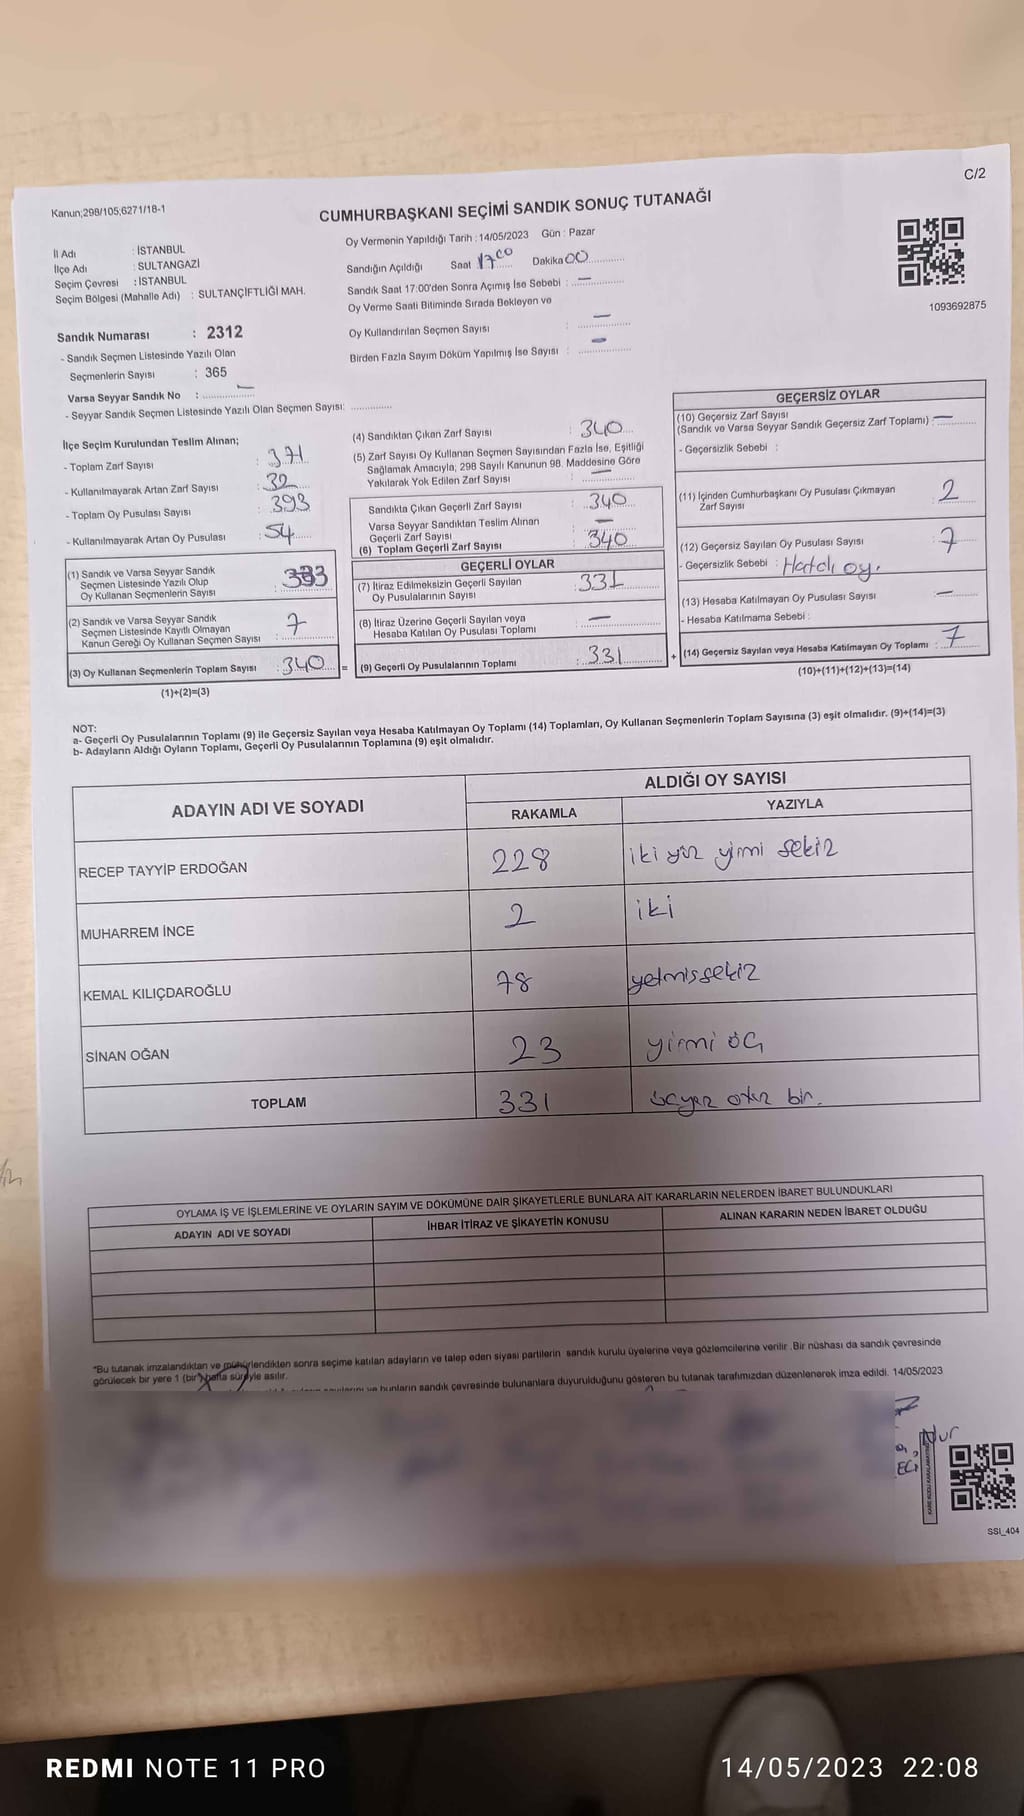 C/2
Kanun;298/105;6271/18-1
CUMHURBAŞKANI SEÇİMİ SANDIK SONUÇ TUTANAĞI
İl Adı : İSTANBUL
İlçe Adı : SULTANGAZİ
Seçim Çevresi : İSTANBUL
Seçim Bölgesi (Mahalle Adı) : SULTANÇİFTLİĞİ MAH.
Oy Vermenin Yapıldığı Tarih : 14/05/2023 Gün : Pazar
Sandığın Açıldığı Saat 17 00 Dakika 00
Sandık Saat 17:00'den Sonra Açımış İse Sebebi : —
Oy Verme Saati Bitiminde Sırada Bekleyen ve
Oy Kullandırılan Seçmen Sayısı : —
Birden Fazla Sayım Döküm Yapılmış İse Sayısı : —
1093692875
Sandık Numarası : 2312
- Sandık Seçmen Listesinde Yazılı Olan
Seçmenlerin Sayısı : 365
Varsa Seyyar Sandık No : —
- Seyyar Sandık Seçmen Listesinde Yazılı Olan Seçmen Sayısı:
İlçe Seçim Kurulundan Teslim Alınan;
- Toplam Zarf Sayısı : 371
- Kullanılmayarak Artan Zarf Sayısı : 32
- Toplam Oy Pusulası Sayısı : 393
- Kullanılmayarak Artan Oy Pusulası : 54
(1) Sandık ve Varsa Seyyar Sandık
Seçmen Listesinde Yazılı Olup
Oy Kullanan Seçmenlerin Sayısı : 333
(2) Sandık ve Varsa Seyyar Sandık
Seçmen Listesinde Kayıtlı Olmayan
Kanun Gereği Oy Kullanan Seçmen Sayısı : 7
(3) Oy Kullanan Seçmenlerin Toplam Sayısı : 340 =
(1)+(2)=(3)
(4) Sandıktan Çıkan Zarf Sayısı : 340
(5) Zarf Sayısı Oy Kullanan Seçmen Sayısından Fazla İse, Eşitliği
Sağlamak Amacıyla, 298 Sayılı Kanunun 98. Maddesine Göre
Yakılarak Yok Edilen Zarf Sayısı : —
Sandıkta Çıkan Geçerli Zarf Sayısı : 340
Varsa Seyyar Sandıktan Teslim Alınan
Geçerli Zarf Sayısı : —
(6) Toplam Geçerli Zarf Sayısı : 340
GEÇERLİ OYLAR
(7) İtiraz Edilmeksizin Geçerli Sayılan
Oy Pusulalarının Sayısı : 331
(8) İtiraz Üzerine Geçerli Sayılan veya
Hesaba Katılan Oy Pusulası Toplamı : —
(9) Geçerli Oy Pusulalarının Toplamı : 331 +
GEÇERSİZ OYLAR
(10) Geçersiz Zarf Sayısı
(Sandık ve Varsa Seyyar Sandık Geçersiz Zarf Toplamı) : —
- Geçersizlik Sebebi :
(11) İçinden Cumhurbaşkanı Oy Pusulası Çıkmayan
Zarf Sayısı : 2
(12) Geçersiz Sayılan Oy Pusulası Sayısı : 7
- Geçersizlik Sebebi : Hatalı oy.
(13) Hesaba Katılmayan Oy Pusulası Sayısı : —
- Hesaba Katılmama Sebebi :
(14) Geçersiz Sayılan veya Hesaba Katılmayan Oy Toplamı : 7
(10)+(11)+(12)+(13)=(14)
NOT:
a- Geçerli Oy Pusulalarının Toplamı (9) ile Geçersiz Sayılan veya Hesaba Katılmayan Oy Toplamı (14) Toplamları, Oy Kullanan Seçmenlerin Toplam Sayısına (3) eşit olmalıdır. (9)+(14)=(3)
b- Adayların Aldığı Oyların Toplamı, Geçerli Oy Pusulalarının Toplamına (9) eşit olmalıdır.
ADAYIN ADI VE SOYADI ALDIĞI OY SAYISI
RAKAMLA YAZIYLA
RECEP TAYYİP ERDOĞAN 228 iki yüz yirmi sekiz
MUHARREM İNCE 2 iki
KEMAL KILIÇDAROĞLU 78 yetmişsekiz
SİNAN OĞAN 23 yirmi üç
TOPLAM 331 üçyüz otuz bir.
OYLAMA İŞ VE İŞLEMLERİNE VE OYLARIN SAYIM VE DÖKÜMÜNE DAİR ŞİKAYETLERLE BUNLARA AİT KARARLARIN NELERDEN İBARET BULUNDUKLARI
ADAYIN ADI VE SOYADI İHBAR İTİRAZ VE ŞİKAYETİN KONUSU ALINAN KARARIN NEDEN İBARET OLDUĞU
"Bu tutanak imzalandıktan ve mühürlendikten sonra seçime katılan adayların ve talep eden siyasi partilerin sandık kurulu üyelerine veya gözlemcilerine verilir .Bir nüshası da sandık çevresinde
görülecek bir yere 1 (bir) hafta süreyle asılır.
ve bunların sandık çevresinde bulunanlara duyurulduğunu gösteren bu tutanak tarafımızdan düzenlenerek imza edildi. 14/05/2023
Nur
SSI_404
REDMI NOTE 11 PRO
14/05/2023 22:08